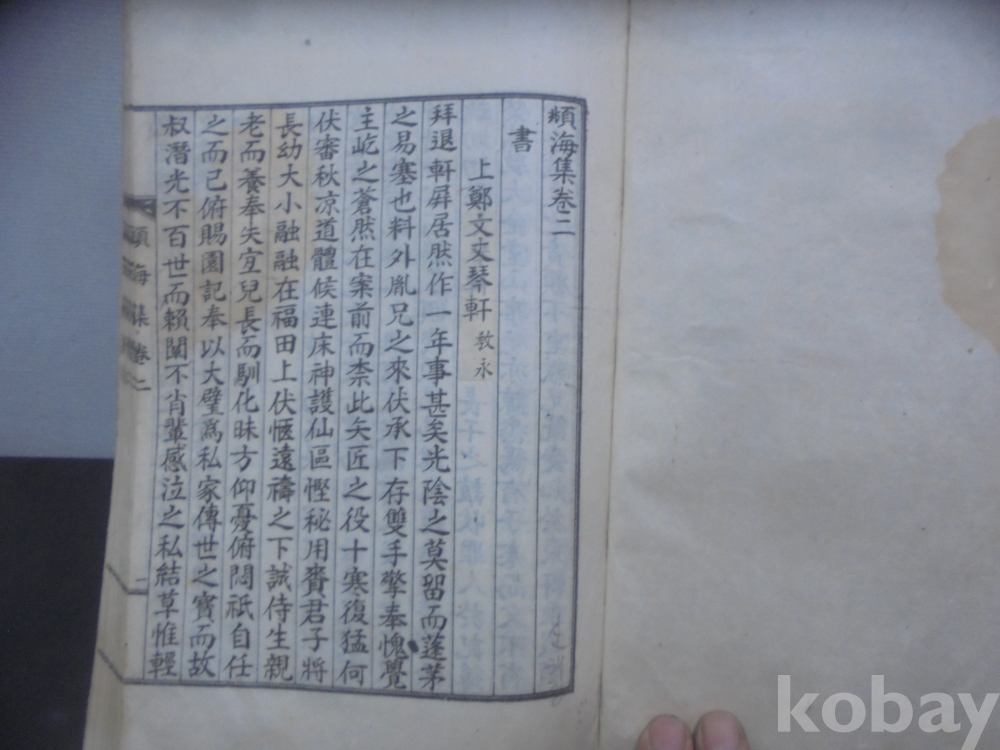 頫海集卷二
書
上鄭文史琴軒 教永
拜退軒屛居然作一年事甚矣光陰之莫留而蓬茅
之易塞也料外胤兄之來伏承下存雙手擎奉愧覺
主屹之蒼然在案前而柰此矢匠之役十寒復猛何
伏審秋凉道體候連床神護仙區慳秘用賚君子將
長幼大小融融在福田上伏愜遠禱之下誠侍生親
老而養奉失宜兒長而馴化昧方仰憂俯悶祇自任
之而已俯賜園記奉以大璧爲私家傳世之寶而故
叔潛光不百世而賴闡不肖輩感泣之私結草惟輕
海集卷二
二
kobay